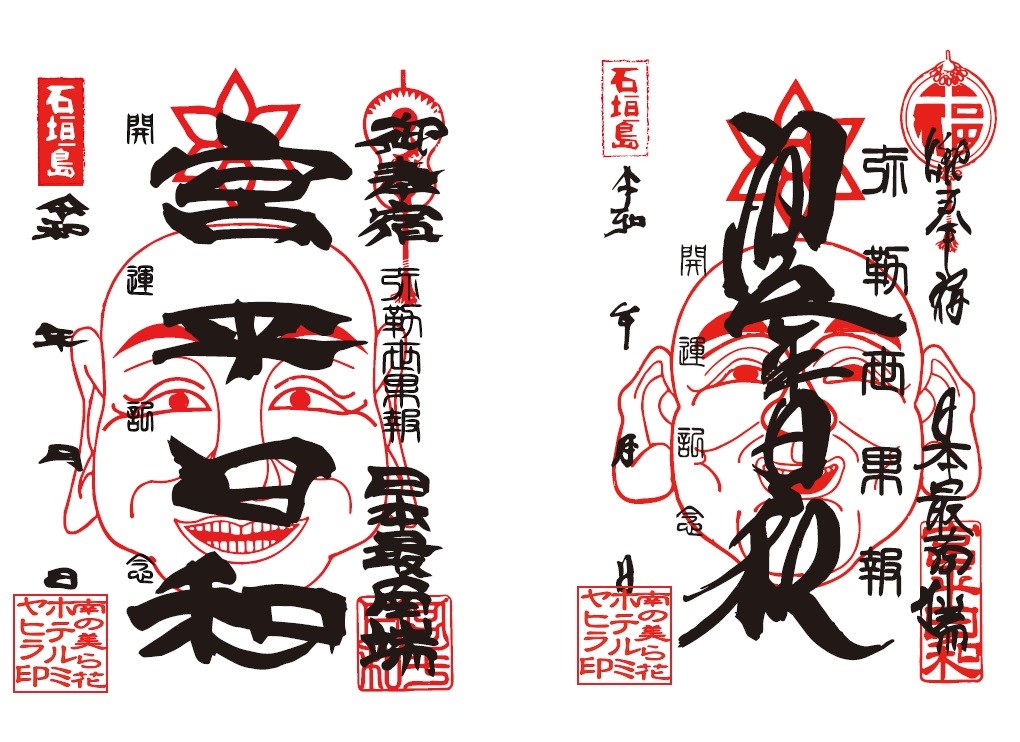 御奉宿
弥勒世果報
日本最南端
宮平日和
開運記念
石垣島
令和 年 月 日
南の美ら花
ホテルミ
ヤヒラ印
福
日本最南端
弥勒世果報
宮平日和
開運記念
石垣島
令和 年 月 日
南の美ら花
ホテルミ
ヤヒラ印